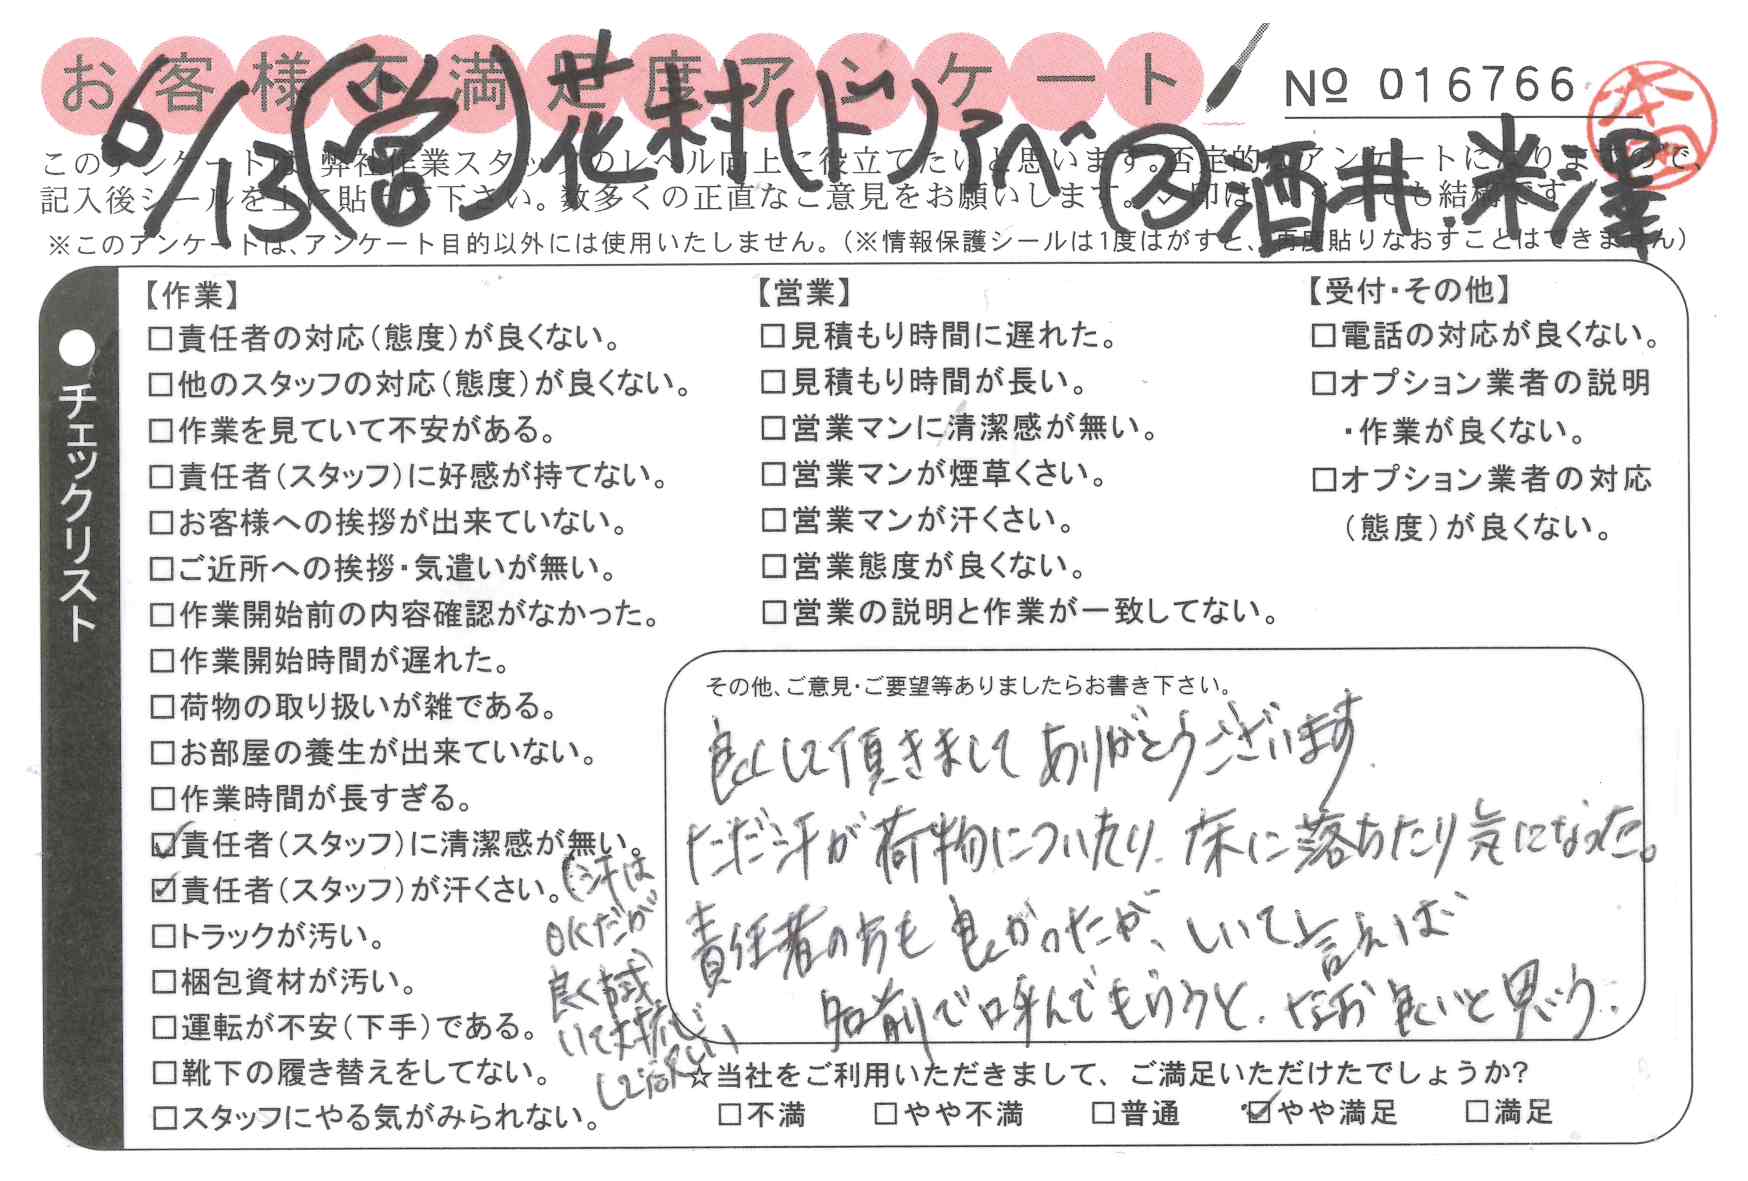 お客様不満足度アンケート
Nº 016766
6/13(営)花村(ド)アベ ス酒井.米澤
このアンケートは、弊社作業スタッフのレベル向上に役立てたいと思います。否定的なアンケートになりますので、
記入後シールを上に貼って下さい。数多くの正直なご意見をお願いします。✓印は、いくつでも結構です。
※このアンケートは、アンケート目的以外には使用いたしません。(※情報保護シールは1度はがすと、再度貼りなおすことはできません)
●チェックリスト
【作業】
□責任者の対応(態度)が良くない。
□他のスタッフの対応(態度)が良くない。
□作業を見ていて不安がある。
□責任者(スタッフ)に好感が持てない。
□お客様への挨拶が出来ていない。
□ご近所への挨拶・気遣いが無い。
□作業開始前の内容確認がなかった。
□作業開始時間が遅れた。
□荷物の取り扱いが雑である。
□お部屋の養生が出来ていない。
□作業時間が長すぎる。
☑責任者(スタッフ)に清潔感が無い。
☑責任者(スタッフ)が汗くさい。
□トラックが汚い。
□梱包資材が汚い。
□運転が不安(下手)である。
□靴下の履き替えをしてない。
□スタッフにやる気がみられない。
(汗は
OKだが
良く
いて
して欲しい
【営業】
□見積もり時間に遅れた。
□見積もり時間が長い。
□営業マンに清潔感が無い。
□営業マンが煙草くさい。
□営業マンが汗くさい。
□営業態度が良くない。
□営業の説明と作業が一致してない。
【受付・その他】
□電話の対応が良くない。
□オプション業者の説明
・作業が良くない。
□オプション業者の対応
(態度)が良くない。
その他、ご意見・ご要望等ありましたらお書き下さい。
良くして頂きまして ありがとうございます.
ただ汗が荷物についたり、床に落ちたり気になった。
責任者の方も良かったが、しいて言えば
名前で呼んでもらうと、なお良いと思う.
☆当社をご利用いただきまして、ご満足いただけたでしょうか?
□不満 □やや不満 □普通 ☑やや満足 □満足